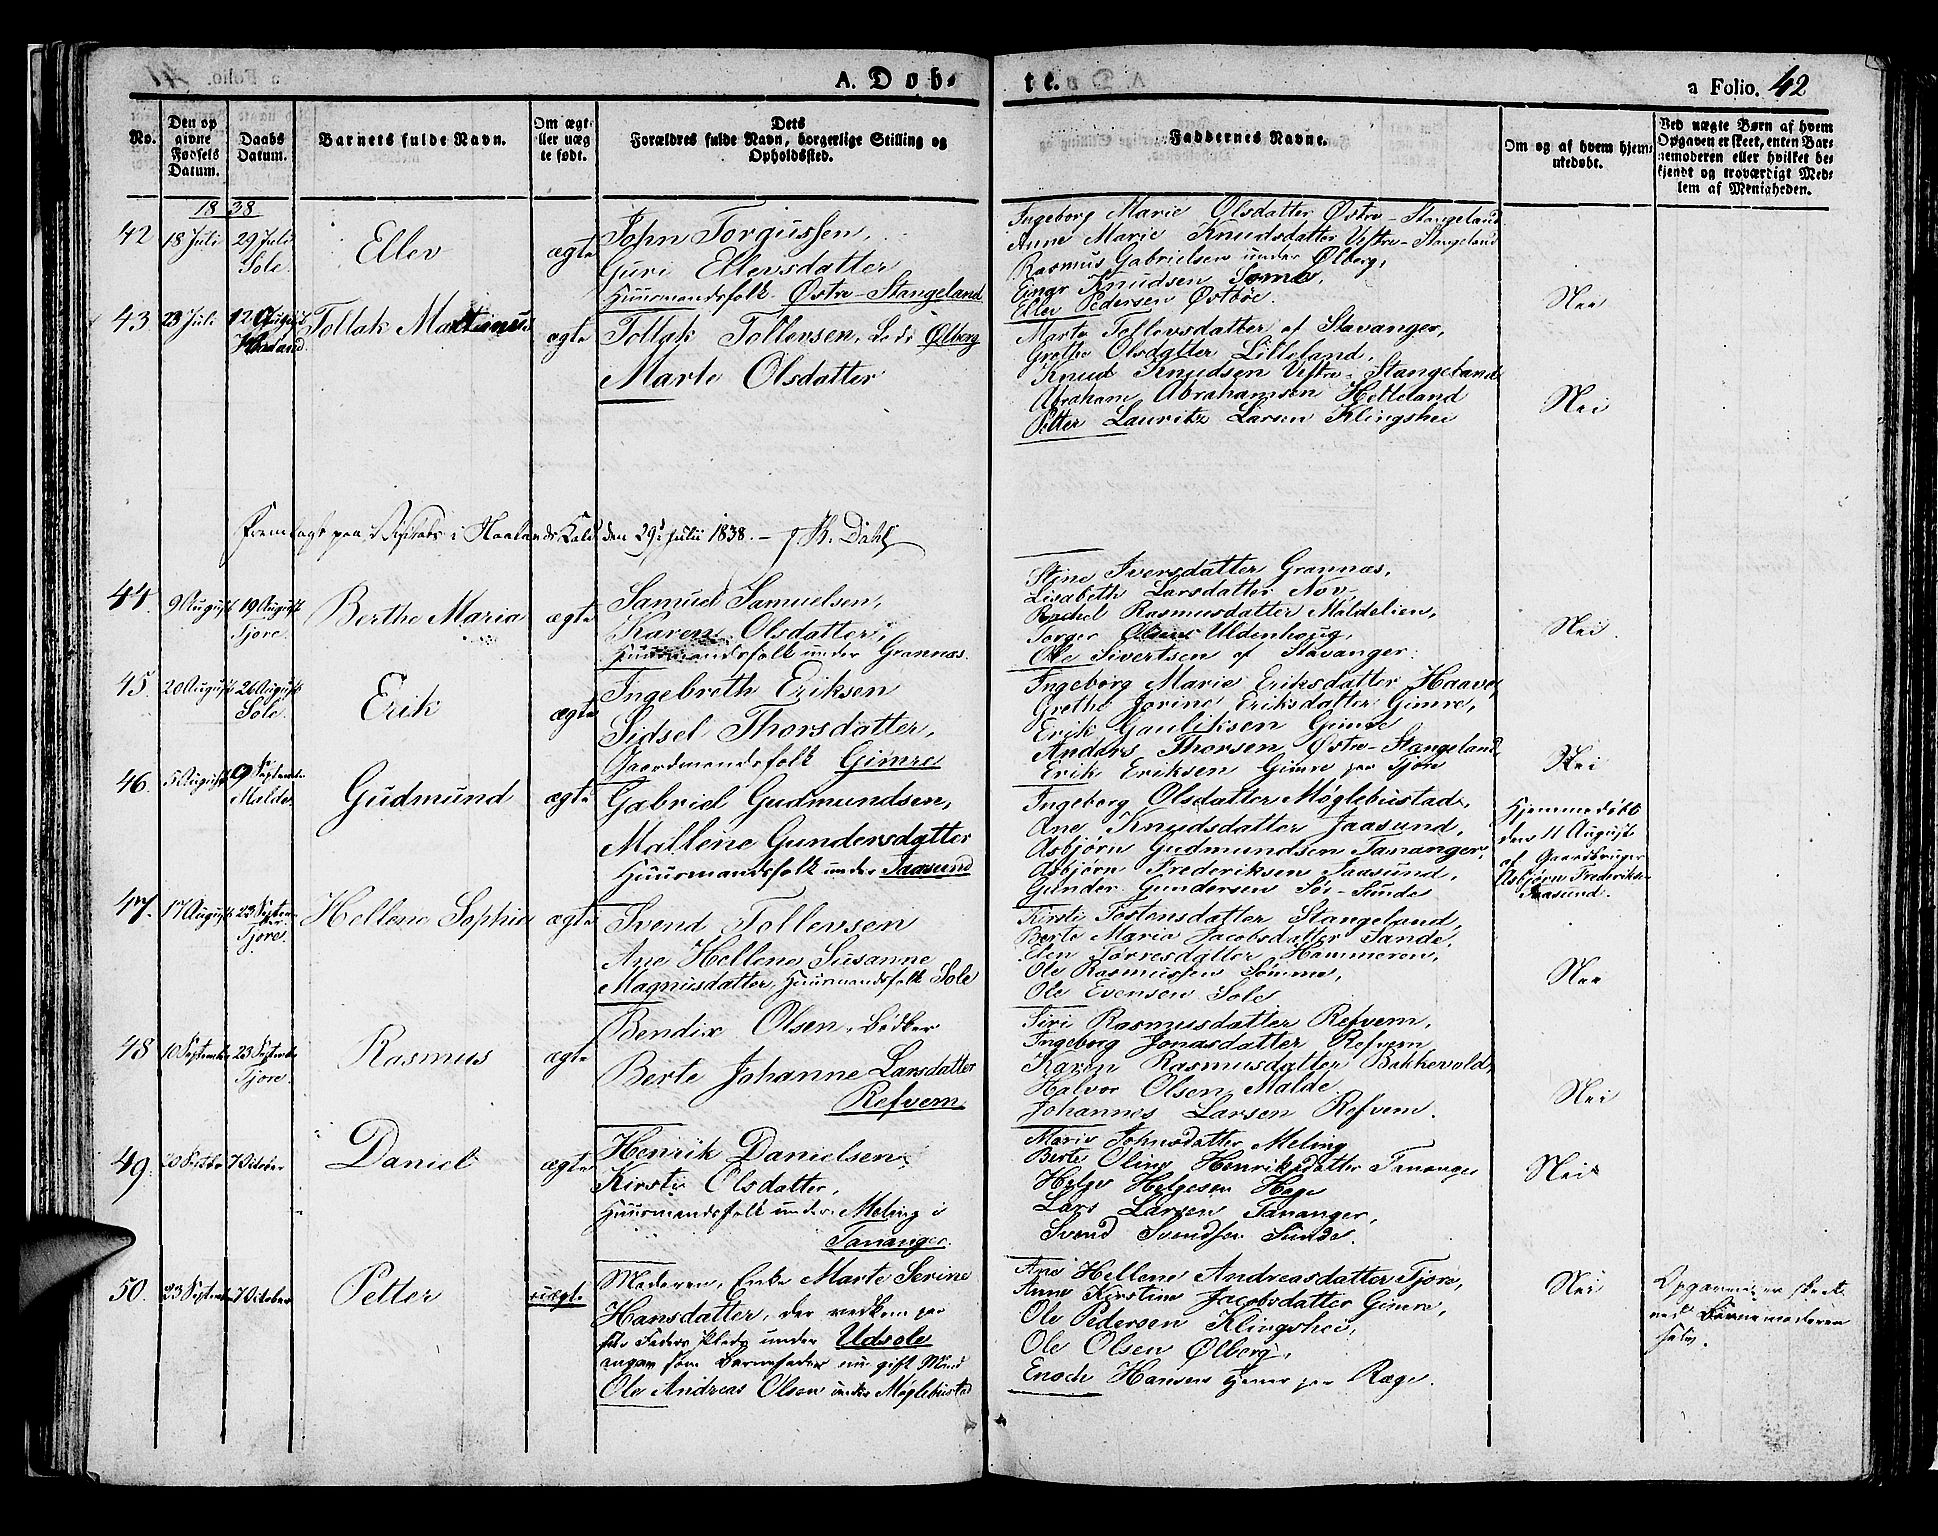 A. Døb-
te.
a Folio. 42
No.
Den op
givne
Fødsels
Datum.
Daabs
Datum.
Barnets fulde Navn.
Om ægt
eller uæg
te født.
Dets
Forældres fulde Navn, borgerlige Stilling og
Opholdssted.
Faddernes Navne.
Om og af hvem hjem-
medøbt.
Ved uægte Børn af hvem
Opgaven er skeet, enten Bar-
nemoderen eller hvilket be-
kjendt og troværdigt Med-
lem af Menigheden.
1838
42
18 Juli
29 Juli
Sole.
Ellev
ægte
John Torgussen,
Guri Ellevsdatter
Huusmandsfolk Østre-Stangeland
Ingeborg Marie Olsdatter Østre-Stangeland
Anne Marie Knudsdatter Vestre-Stangeland
Rasmus Gabrielsen under Ølberg,
Einar Knudsen Sømme,
Ellev Pedersen Østbøe.
Nei
43
23 Juli
12 August
Haaland
Tollak Martinus
ægte
Tollak Tollevsen, Leds Ølberg
Marte Olsdatter
Marte Tollevsdatter af Stavanger,
Grethe Olsdatter Lilleland,
Knud Knudsen Vestre-Stangeland
Abraham Abrahamsen Helleland
Petter Lauritz Larsen Klingshei
Nei
Fremlagt paa Visitats i Haalands Kald den 29de Julii 1838. – J. K. Dahl
44.
9 August
19 August
Tjore.
Berthe Maria
ægte
Samuel Samuelsen,
Karen Olsdatter,
Huusmandsfolk under Grannæs.
Stine Iversdatter Grannæs,
Lisabeth Larsdatter Nov,
Rachel Rasmusdatter Maldelien,
Torger Olsen Uldenhoug,
Ole Sivertsen af Stavanger.
Nei.
45.
20 August
26 August
Sole.
Erik
ægte
Ingebreth Eriksen
Sidsel Thorsdatter,
Gaardmandsfolk Gimre
Ingeborg Marie Eriksdatter Haave,
Grethe Jorine Eriksdatter Gimre,
Erik Gauliksen Gimre
Anders Thorsen Østre-Stangeland,
Erik Eriksen Gimre paa Tjore
Nei
46.
5 August
9 September
Malde
Gudmund
ægte
Gabriel Gudmundsen,
Mallene Gundersdatter
Huusmandsfolk under Jaasund
Ingeborg Olsdatter Møglebustad,
Ane Knudsdatter Jaasund,
Asbjørn Gudmundsen Tananger,
Asbjørn Frederiksen Jaasund,
Gunder Gundersen Sør-Sunde
Hjemmedøbt
den 11 August
af Gaardbruger
Asbjørn Frederiksen
Jaasund.
47.
17 August
23 Septem
ber
Tjore.
Hellene Sophia
ægte
Svend Tollevsen
Ane Hellene Susanne
Magnusdatter, Huusmandsfolk Sole
Kirsti Tostensdatter Stangeland,
Berte Maria Jacobsdatter Sande,
Elen Torresdatter Hammeren,
Ole Rasmussen Sømme,
Ole Evensen Sole
Nei
48
10 September
23 September
Tjore.
Rasmus
ægte
Bendix Olsen, Bødker
Berte Johanne Larsdatter
Refvem
Siri Rasmusdatter Refvem,
Ingeborg Jonasdatter Refvem
Karen Rasmusdatter Bakkevold,
Halvor Olsen Malde
Johannes Larsen Refvem.
Nei
49.
20 Septbr
7 October
Daniel
ægte
Henrik Danielsen,
Kirsti Olsdatter,
Huusmandsfolk under Meling i
Tananger.
Marie Johnsdatter Meling
Berte Oline Henriksdatter Tananger
Helge Helgesen Hage
Lars Larsen Tananger,
Svend Svendsen Sunde.
Nei
50.
23 September
7 October
Petter
uægte
Moderen, Enke Marte Serine
Hansdatter, der vedkom paa
sit Faders Plads under Udsole
angav som Barnefader nu gift Mand
Ole Andreas Olsen under Møglebustad
Ane Hellene Andreasdatter Tjore,
Anne Kirstine Jacobsdatter Gimre,
Ole Pedersen Klingshei,
Ole Olsen Ølberg,
Enoch Hansen tjener paa Ræge.
Nei
Opgaven er skeet
ved Barnemoderen
selv.